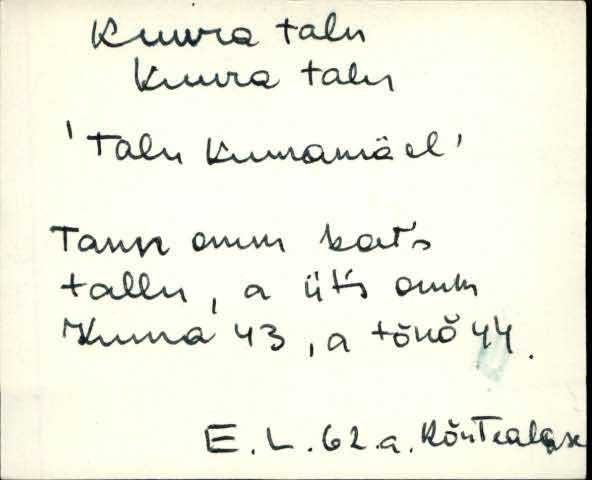 Kuura talu
Kuura talu
'Talu Kuuramäel'
Taun omm kat's
tallu, a üt's omm
Kuura 43, a tõnõ 44.
E. L. 62 a.